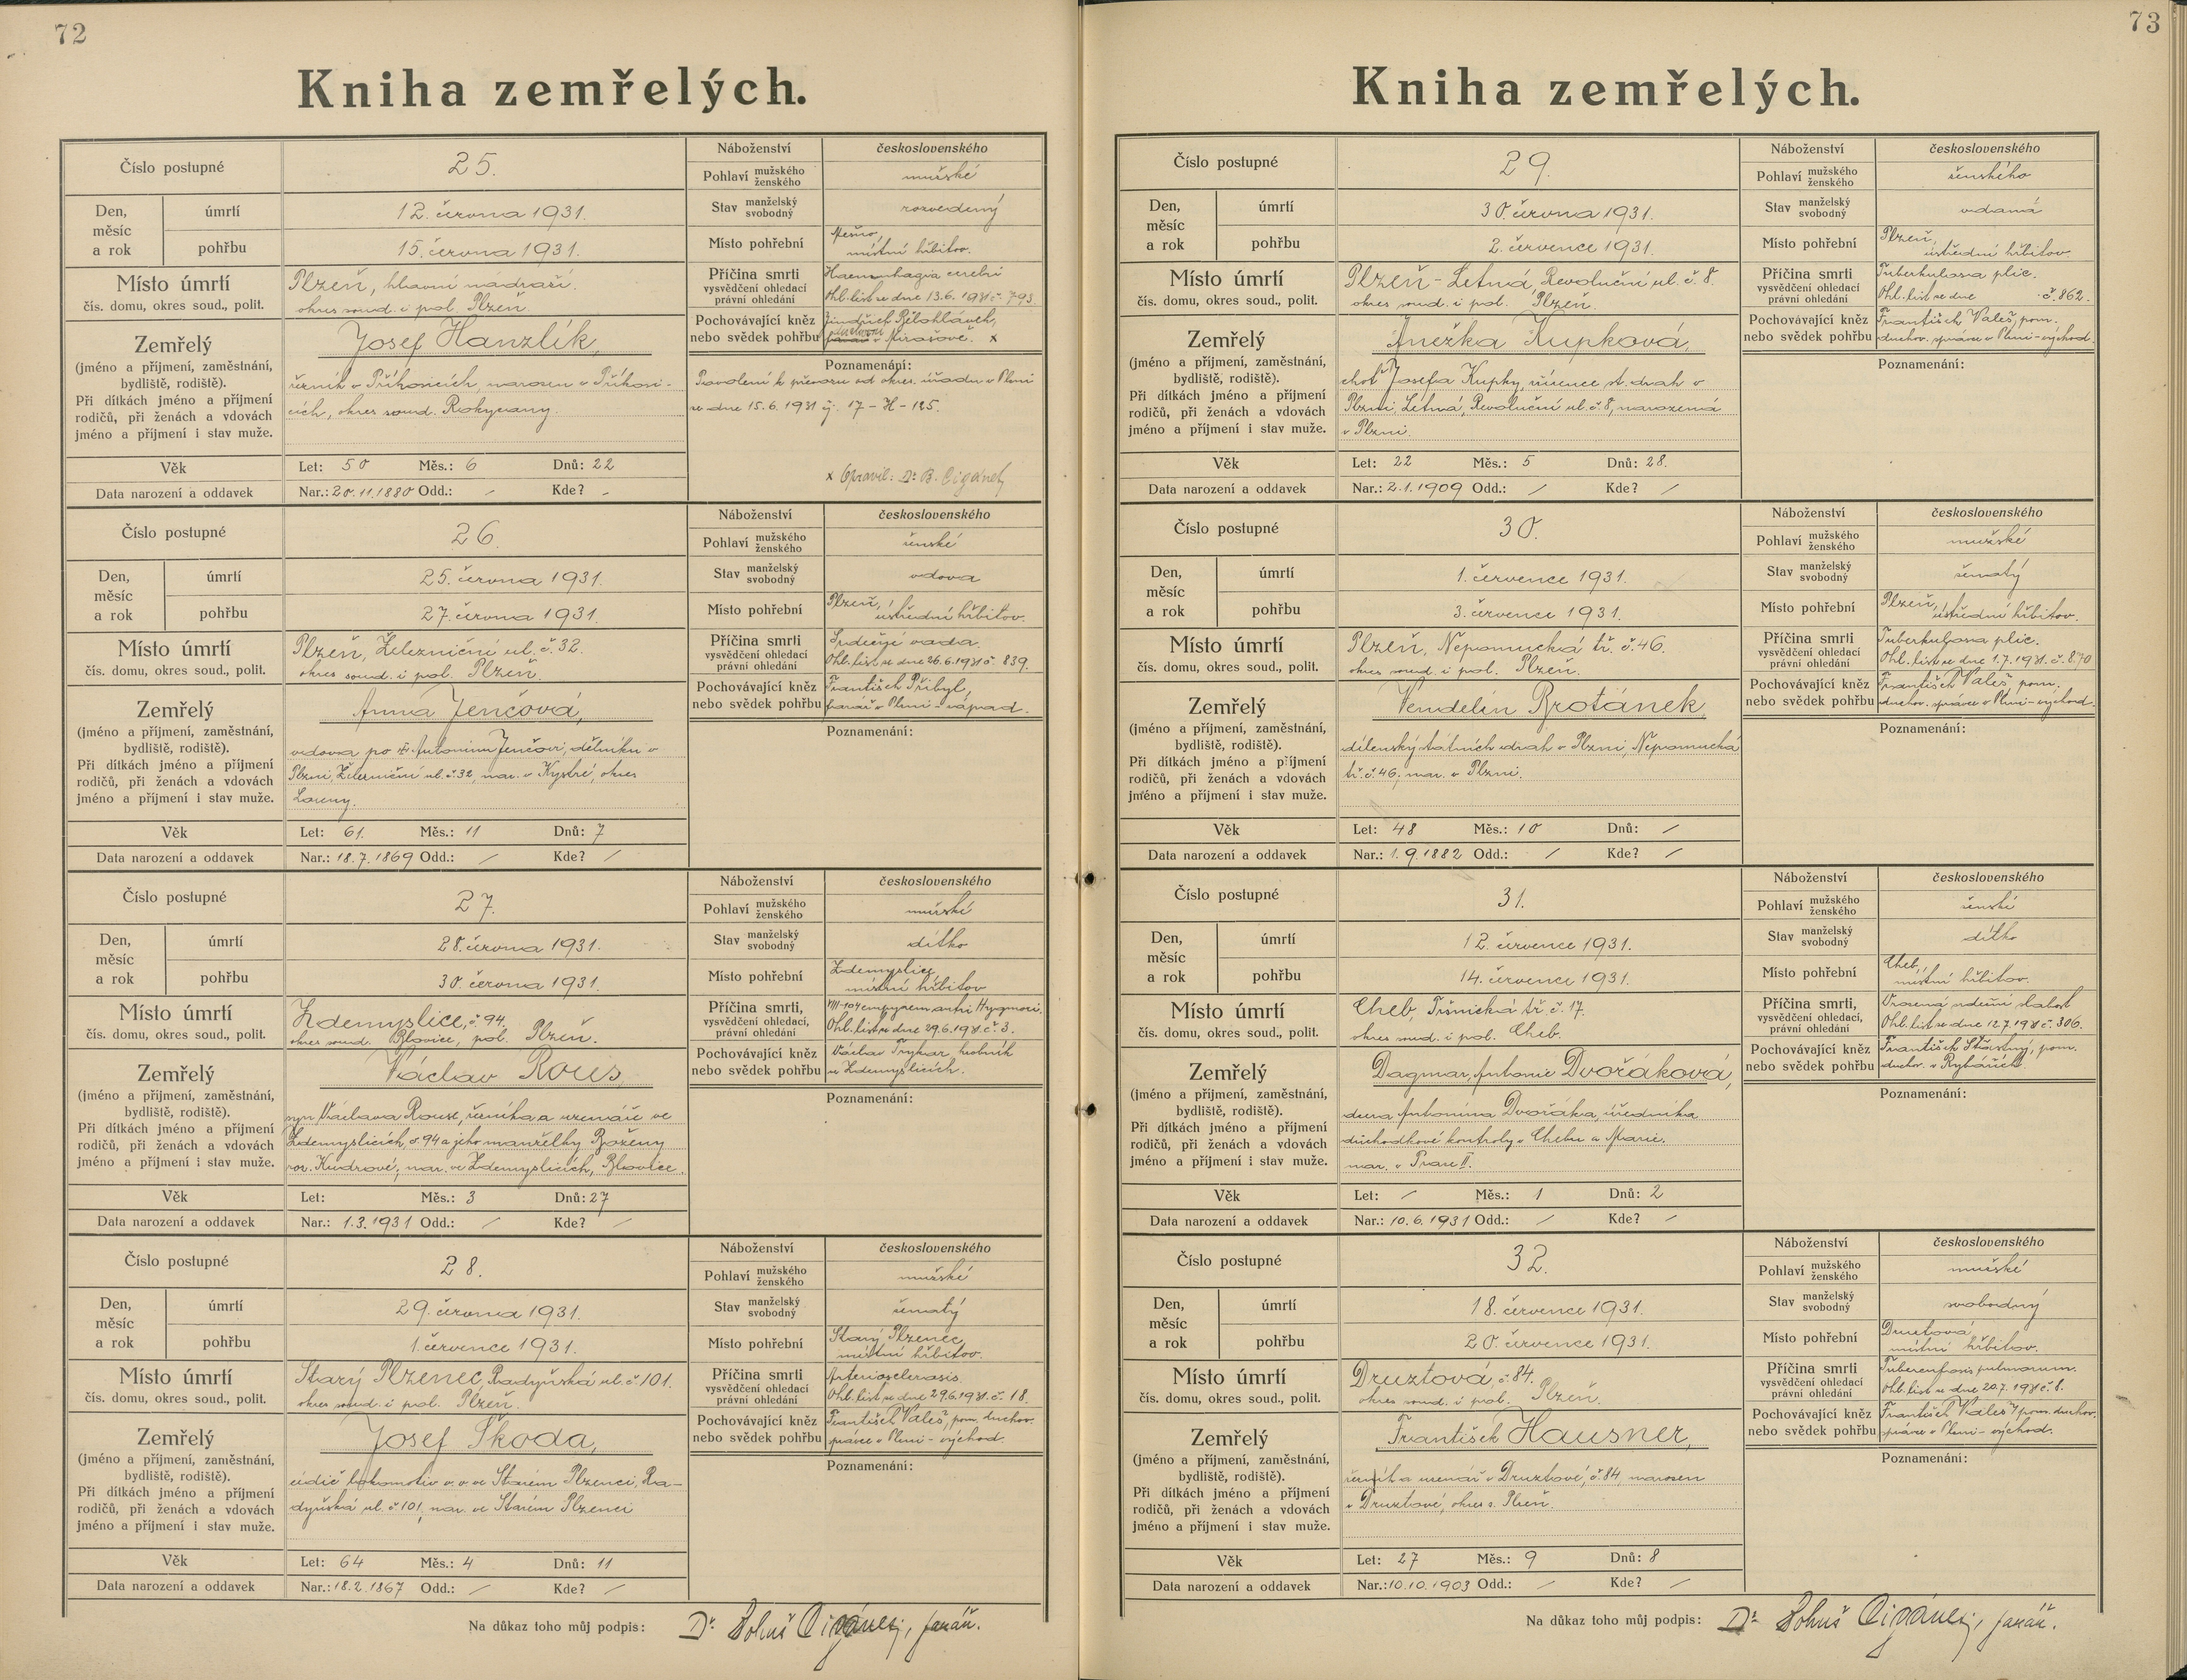 72
Kniha zemřelých.
Číslo postupné 25. Náboženství československého
Pohlaví mužského ženského mužské
Den, měsíc a rok úmrtí 12. června 1931. Stav manželský svobodný rozvedený
pohřbu 15. června 1931. Místo pohřební místní hřbitov.
Místo úmrtí Plzeň, hlavní nádraží. Příčina smrti Haemorrhagia cerebri
čís. domu, okres soud., polit. okres soud. i pol. Plzeň. vysvědčení ohledací právní ohledání Ohl. list ze dne 13.6.1931 č. 793.
Zemřelý Josef Hanzlík, Pochovávající kněz nebo svědek pohřbu Jindřich Bělohlávek, v Mirošově. x
(jméno a příjmení, zaměstnání, bydliště, rodiště). Při dítkách jméno a příjmení rodičů, při ženách a vdovách jméno a příjmení i stav muže.
řezník v Příkosicích, narozen v Příkosi-
cích, okres soud. Rokycany.
Poznamenání:
Povolení k převozu od okres. úřadu v Plzni
ze dne 15.6.1931 čj. 17-H-125.
x Opravil: Dr B. Cigánek
Věk Let: 50 Měs.: 6 Dnů: 22
Data narození a oddavek Nar.: 20.11.1880 Odd.: / Kde? /
Číslo postupné 26. Náboženství československého
Pohlaví mužského ženského ženské
Den, měsíc a rok úmrtí 25. června 1931. Stav manželský svobodný vdova
pohřbu 27. června 1931. Místo pohřební Plzeň, ústřední hřbitov.
Místo úmrtí Plzeň, Železniční ul. č. 32. Příčina smrti Srdeční vada.
čís. domu, okres soud., polit. okres soud. i pol. Plzeň. vysvědčení ohledací právní ohledání Ohl. list ze dne 26.6.1931 č. 839.
Zemřelý Anna Jenčová, Pochovávající kněz nebo svědek pohřbu František Přibyl, farář v Plzni-západ.
(jméno a příjmení, zaměstnání, bydliště, rodiště). Při dítkách jméno a příjmení rodičů, při ženách a vdovách jméno a příjmení i stav muže.
vdova po Antonínu Jenčovi, dělníku v
Plzni, Železniční ul. č. 32, nar. v okres
Louny.
Poznamenání:
Věk Let: 61. Měs.: 11 Dnů: 7
Data narození a oddavek Nar.: 18.7.1869 Odd.: / Kde? /
Číslo postupné 27. Náboženství československého
Pohlaví mužského ženského mužské
Den, měsíc a rok úmrtí 28. června 1931. Stav manželský svobodný dítko
pohřbu 30. června 1931. Místo pohřební Zdemyslice, místní hřbitov
Místo úmrtí Zdemyslice, č. 94. Příčina smrti, VIII-104 empyem antri Hygmori.
čís. domu, okres soud., polit. okres soud. Blovice, pol. Plzeň. vysvědčení ohledací, právní ohledání Ohl. list ze dne 29.6.1931 č. 3.
Zemřelý Václav Rous, Pochovávající kněz nebo svědek pohřbu Václav hrobník ve Zdemyslicích.
(jméno a příjmení, zaměstnání, bydliště, rodiště). Při dítkách jméno a příjmení rodičů, při ženách a vdovách jméno a příjmení i stav muže.
syn Václava Rouse, řezníka a uzenáře ve
Zdemyslicích, č. 94 a jeho manželky Boženy
roz. Kudrové, nar. ve Zdemyslicích, Blovice.
Poznamenání:
Věk Let: Měs.: 3 Dnů: 27
Data narození a oddavek Nar.: 1.3.1931 Odd.: / Kde? /
Číslo postupné 28. Náboženství československého
Pohlaví mužského ženského mužské
Den, měsíc a rok úmrtí 29. června 1931. Stav manželský svobodný ženatý
pohřbu 1. července 1931. Místo pohřební Starý Plzenec, místní hřbitov.
Místo úmrtí Starý Plzenec, Radyňská ul. č. 101. Příčina smrti Arteriosclerosis.
čís. domu, okres soud., polit. okres soud. i pol. Plzeň. vysvědčení ohledací právní ohledání Ohl. list ze dne 29.6.1931. č. 18.
Zemřelý Josef Škoda, Pochovávající kněz nebo svědek pohřbu František Valeš, pom. duchov. správce v Plzni-východ.
(jméno a příjmení, zaměstnání, bydliště, rodiště). Při dítkách jméno a příjmení rodičů, při ženách a vdovách jméno a příjmení i stav muže.
řidič lokomotiv v. v. ve Starém Plzenci, Ra-
dyňská ul. č. 101, nar. ve Starém Plzenci
Poznamenání:
Věk Let: 64 Měs.: 4 Dnů: 11
Data narození a oddavek Nar.: 18.2.1867 Odd.: / Kde? /
Na důkaz toho můj podpis: Dr. Bohuš Cigánek, farář.
73
Kniha zemřelých.
Číslo postupné 29. Náboženství československého
Pohlaví mužského ženského ženského
Den, měsíc a rok úmrtí 30. června 1931. Stav manželský svobodný vdaná
pohřbu 2. července 1931. Místo pohřební Plzeň, ústřední hřbitov.
Místo úmrtí Plzeň-Letná, Revoluční ul. č. 8. Příčina smrti Tuberkulosa plic.
čís. domu, okres soud., polit. okres soud. i pol. Plzeň. vysvědčení ohledací právní ohledání Ohl. list ze dne č. 862.
Zemřelý Anežka Kupková, Pochovávající kněz nebo svědek pohřbu František Valeš, pom. duchov. správce v Plzni-východ.
(jméno a příjmení, zaměstnání, bydliště, rodiště). Při dítkách jméno a příjmení rodičů, při ženách a vdovách jméno a příjmení i stav muže.
choť Josefa Kupky, zřízence st. drah v
Plzni, Letná, Revoluční ul. č. 8, narozená
v Plzni.
Poznamenání:
Věk Let: 22 Měs.: 5 Dnů: 28.
Data narození a oddavek Nar.: 2.1.1909 Odd.: / Kde? /
Číslo postupné 30. Náboženství československého
Pohlaví mužského ženského mužské
Den, měsíc a rok úmrtí 1. července 1931. Stav manželský svobodný ženatý
pohřbu 3. července 1931. Místo pohřební Plzeň, ústřední hřbitov.
Místo úmrtí Plzeň, Nepomucká tř. č. 46. Příčina smrti Tuberkulosa plic.
čís. domu, okres soud., polit. okres soud. i pol. Plzeň. vysvědčení ohledací právní ohledání Ohl. list ze dne 1.7.1931. č. 870
Zemřelý Vendelín Brotánek, Pochovávající kněz nebo svědek pohřbu František Valeš, pom. duchov. správce v Plzni-východ.
(jméno a příjmení, zaměstnání, bydliště, rodiště). Při dítkách jméno a příjmení rodičů, při ženách a vdovách jméno a příjmení i stav muže.
dílenský státních drah v Plzni, Nepomucká
tř. č. 46, nar. v Plzni.
Poznamenání:
Věk Let: 48 Měs.: 10 Dnů: /
Data narození a oddavek Nar.: 1.9.1882 Odd.: / Kde? /
Číslo postupné 31. Náboženství československého
Pohlaví mužského ženského ženské
Den, měsíc a rok úmrtí 12. července 1931. Stav manželský svobodný dítko
pohřbu 14. července 1931. Místo pohřební Cheb, místní hřbitov.
Místo úmrtí Cheb, Tršnická tř. č. 17. Příčina smrti, Vrozená srdeční slabost
čís. domu, okres soud., polit. okres soud. i pol. Cheb. vysvědčení ohledací, právní ohledání Ohl. list ze dne 12.7.1931 č. 306.
Zemřelý Dagmar, Antonie Dvořáková, Pochovávající kněz nebo svědek pohřbu František Šťastný, pom. duchov. v Rybářích.
(jméno a příjmení, zaměstnání, bydliště, rodiště). Při dítkách jméno a příjmení rodičů, při ženách a vdovách jméno a příjmení i stav muže.
dcera Antonína Dvořáka, úředníka
důchodkové kontroly v Chebu a Marie.
nar. v Praze II.
Poznamenání:
Věk Let: / Měs.: 1 Dnů: 2
Data narození a oddavek Nar.: 10.6.1931 Odd.: / Kde? /
Číslo postupné 32. Náboženství československého
Pohlaví mužského ženského mužské
Den, měsíc a rok úmrtí 18. července 1931. Stav manželský svobodný svobodný
pohřbu 20. července 1931. Místo pohřební Druztová, místní hřbitov.
Místo úmrtí Druztová, č. 84. Příčina smrti Tuberculosis pulmonum.
čís. domu, okres soud., polit. okres soud. i pol. Plzeň. vysvědčení ohledací právní ohledání Ohl. list ze dne 20.7.1931 č. 8.
Zemřelý František Hausner, Pochovávající kněz nebo svědek pohřbu František Valeš, pom. duchov. správce v Plzni-východ.
(jméno a příjmení, zaměstnání, bydliště, rodiště). Při dítkách jméno a příjmení rodičů, při ženách a vdovách jméno a příjmení i stav muže.
řezník a uzenář v Druztové, č. 84, narozen
v Druztové, okres s. Plzeň.
Poznamenání:
Věk Let: 27 Měs.: 9 Dnů: 8
Data narození a oddavek Nar.: 10.10.1903 Odd.: / Kde? /
Na důkaz toho můj podpis: Dr. Bohuš Cigánek, farář.